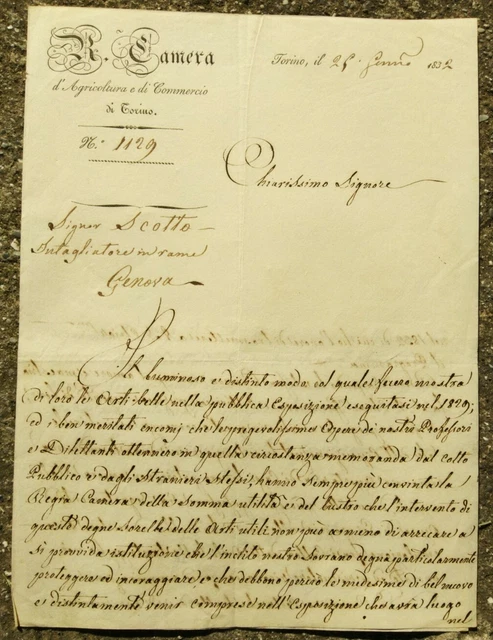 R. Camera
d'Agricoltura e di Commercio
di Torino.
N.° 1129
Torino, il 25 Genn.o 1832
Chiarissimo Signore
Signor Scotto
Intagliatore in rame
Genova
Il luminoso e distinto modo col quale fecero mostra
di loro le Arti belle nella pubblica Esposizione eseguitasi nel 1829;
ed i ben meritati encomj che le pregevolissime Opere di nostri Professori
e Dilettanti ottennero in quella circostanza memoranda dal colto
Pubblico e dagli Stranieri stessi, hanno sempre più convinta la
Regia Camera della somma utilità e del lustro che l'intervento di
queste degne Sorelle delle Arti utili non può a meno di arrecare a
sì provvida istituzione che l'inclito nostro Sovrano degna particolarmente
proteggere ed incoraggiare e che debbono perciò le medesime di bel nuovo
e distintamente venir comprese nell'Esposizione che avrà luogo
nel